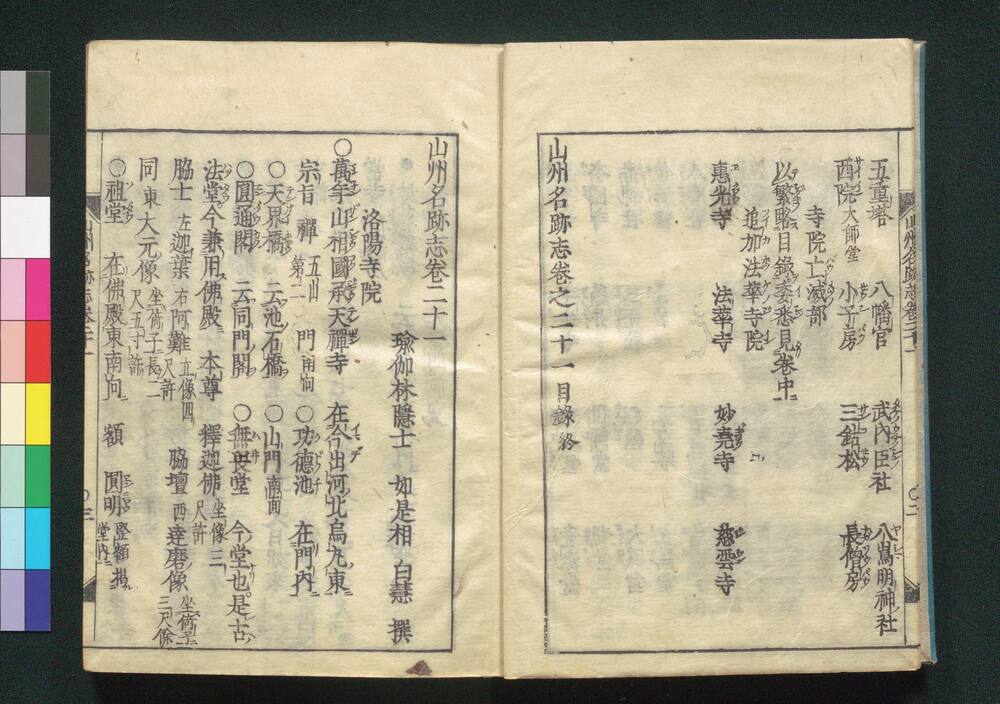 五重塔 八幡宮 武内臣社 八嶌明神社
西院 大師堂 小子房 三鈷松 長僧房
寺院亡滅部
以繁略目錄委悉見卷中
追加法華寺院
惠光寺 法華寺 妙壽寺 慈雲寺
山州名跡志卷之二十一 目錄終
山州名跡志卷二十一
瑜伽林隱士 如是相 白慧 撰
洛陽寺院
○萬年山相國承天禪寺 在今出河北烏丸東
宗旨 禪 五山第二 門 南向 ○功德池 在門內
○天界橋 云池石橋 ○山門 南面
○圓通閣 云同門閣 ○無畏堂 今堂也是古
法堂今兼用佛殿 本尊 釋迦佛 坐像三尺許
脇士 左迦葉 右阿難 立像四尺許 脇壇 西達磨像 坐倚子三尺餘
同東大元像 坐倚子長二尺五寸許
○祖堂 在佛殿東南向 額 圓明 竪額揭堂內